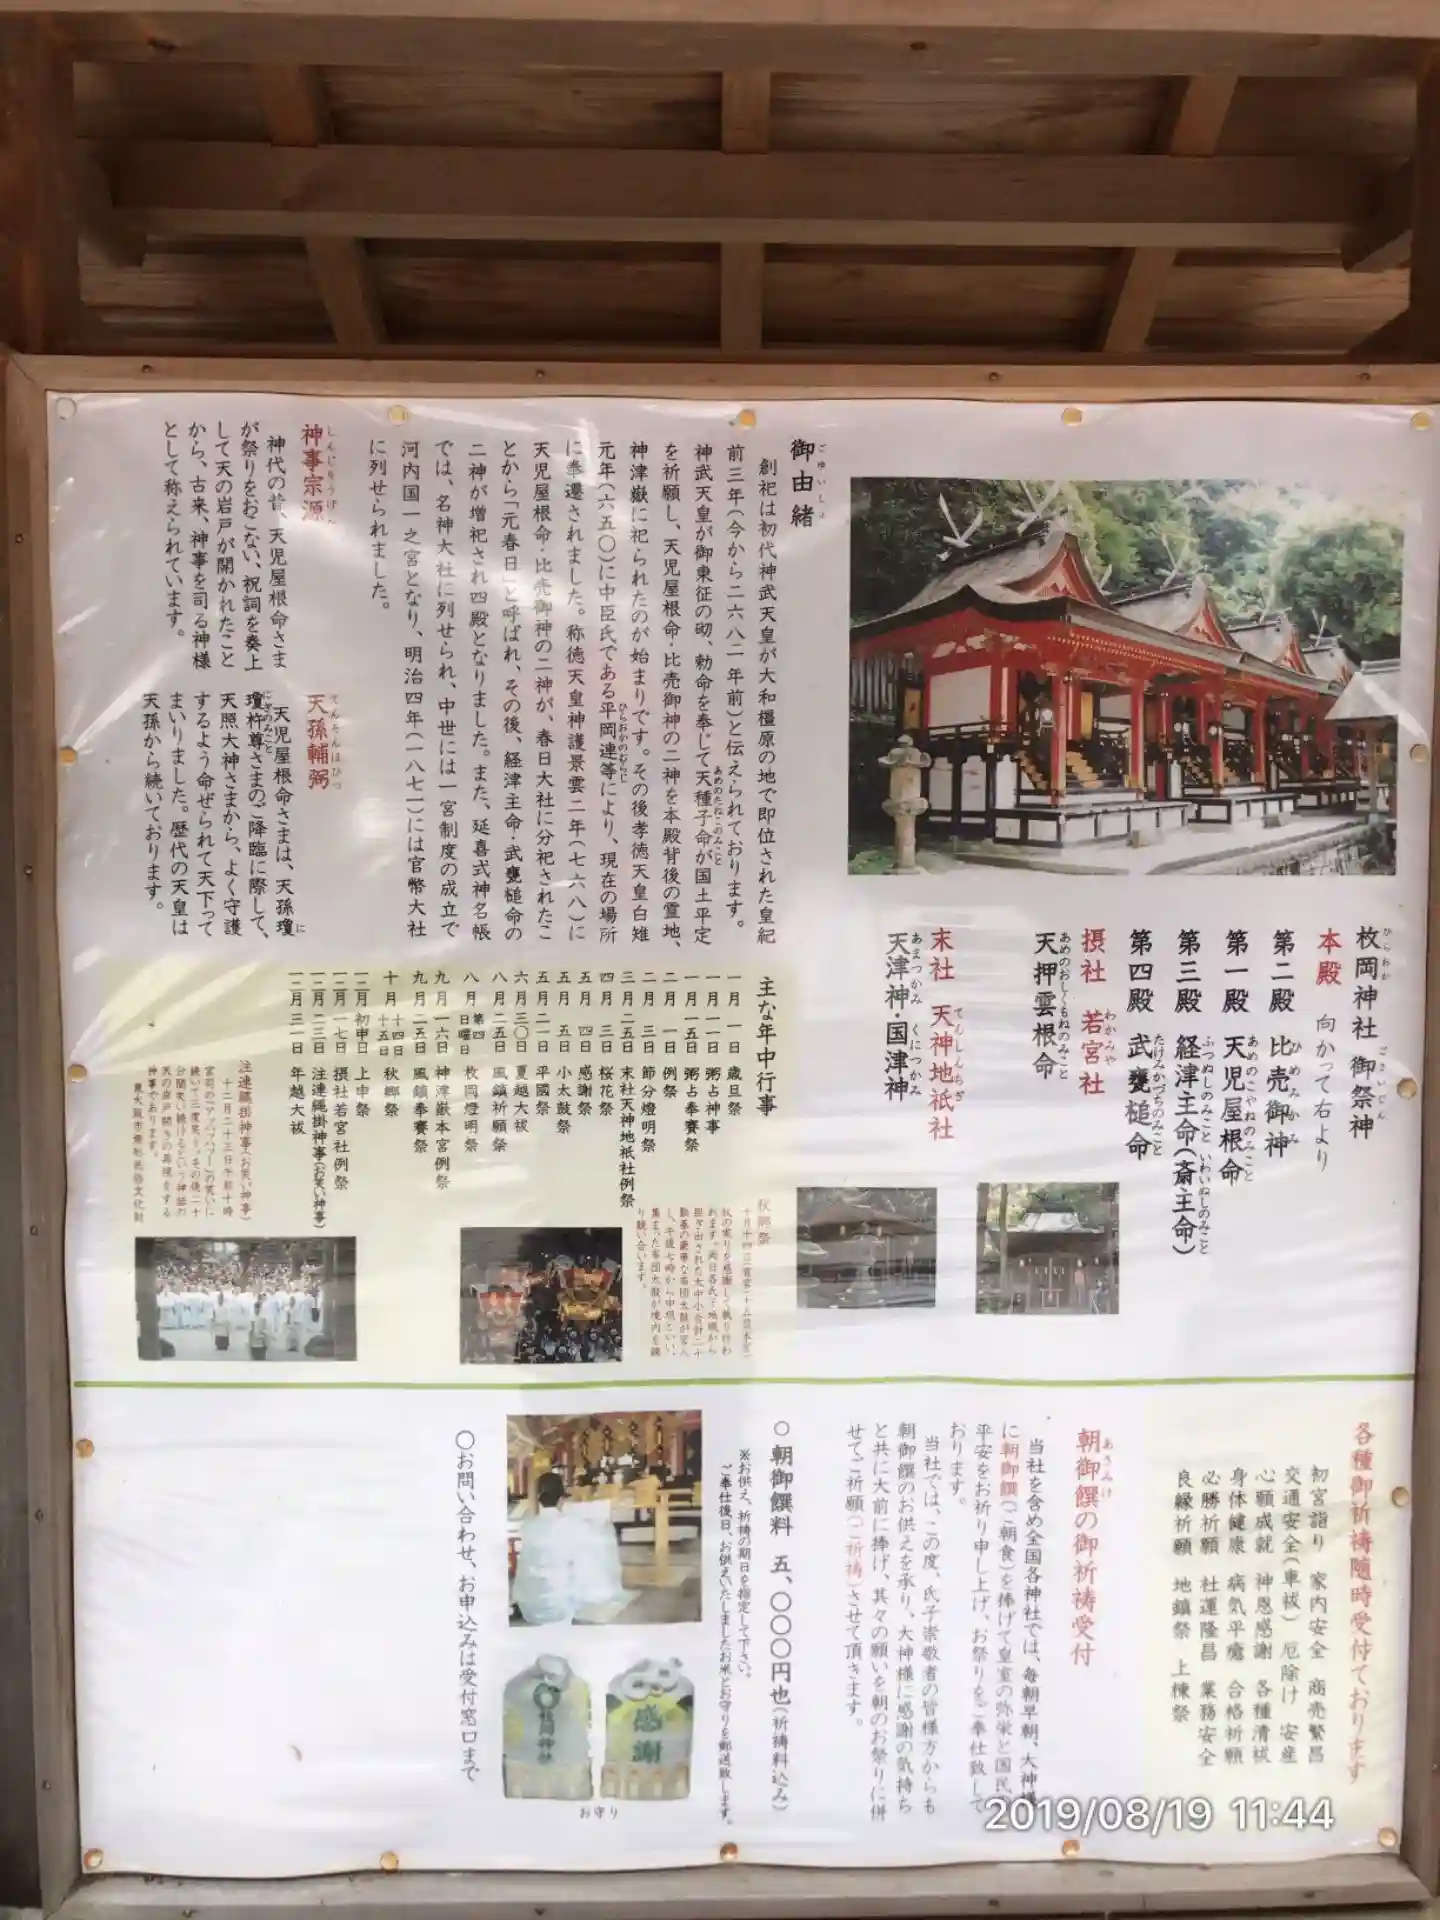 枚岡神社 御祭神
本殿 向かって右より
第二殿 比売御神
第一殿 天児屋根命
第三殿 経津主命(斎主命)
第四殿 武甕槌命
摂社 若宮社
天押雲根命
末社 天神地祇社
天津神・国津神
御由緒
創祀は初代神武天皇が大和橿原の地で即位された皇紀
前三年(今から二六八二年前)と伝えられております。
神武天皇が御東征の砌、勅命を奉じて天種子命が国土平定
を祈願し、天児屋根命・比売御神の二神を本殿背後の霊地、
神津嶽に祀られたのが始まりです。その後孝徳天皇白雉
元年(六五〇)に中臣氏である平岡連等により、現在の場所
に奉遷されました。称徳天皇神護景雲二年(七六八)に
天児屋根命・比売御神の二神が、春日大社に分祀されたこ
とから「元春日」と呼ばれ、その後、経津主命・武甕槌命の
二神が増祀され四殿となりました。また、延喜式神名帳
では、名神大社に列せられ、中世には一宮制度の成立で
河内国一之宮となり、明治四年(一八七一)には官幣大社
に列せられました。
神事宗源
神代の昔、天児屋根命さま
が祭りをおこない、祝詞を奏上
して天の岩戸が開かれたこと
から、古来、神事を司る神様
として称えられています。
天孫輔弼
天児屋根命さまは、天孫瓊
瓊杵尊さまのご降臨に際して、
天照大神さまから、よく守護
するよう命ぜられて天下って
まいりました。歴代の天皇は
天孫から続いております。
主な年中行事
一月 一日 歳旦祭
一月一一日 粥占神事
一月一五日 粥占奉賽祭
二月 一日 例祭
二月 三日 節分燈明祭
三月二五日 末社天神地祇社例祭
四月 三日 桜花祭
五月 四日 感謝祭
五月 五日 小太鼓祭
五月二一日 平國祭
六月三〇日 夏越大祓
八月二五日 風鎮祈願祭
八月 第四日曜日 枚岡燈明祭
九月一六日 神津嶽本宮例祭
九月二五日 風鎮奉賽祭
十月 十四日 十五日 秋郷祭
一二月初申日 上申祭
一二月一七日 摂社若宮社例祭
一二月二三日 注連縄掛神事(お笑い神事)
一二月三一日 年越大祓
秋郷祭
注連縄掛神事(お笑い神事)
十二月二十三日午前十時
神事であります。
東大阪市無形民俗文化財
各種御祈祷随時受付ております
初宮詣り 家内安全 商売繁昌
交通安全(車祓) 厄除け 安産
心願成就 神恩感謝 各種清祓
身体健康 病気平癒 合格祈願
必勝祈願 社運隆昌 業務安全
良縁祈願 地鎮祭 上棟祭
朝御饌の御祈祷受付
当社を含め全国各神社では、毎朝早朝、大神様
に朝御饌(ご朝食)を捧げて皇室の弥栄と国民
平安をお祈り申し上げ、お祭りをご奉仕致して
おります。
当社では、この度、氏子崇敬者の皆様方からも
朝御饌のお供えを承り、大神様に感謝の気持ち
と共に大前に捧げ、其々の願いを朝のお祭りに併
せてご祈願(ご祈祷)させて頂きます。
○朝御饌料 五、〇〇〇円也(祈祷料込み)
※お供え、祈祷の期日を指定して下さい。
ご奉仕後日、お供えいたしましたお米とお守りを郵送致します。
感謝
枚岡神社
お守り
○お問い合わせ、お申込みは受付窓口まで
2019/08/19 11:44